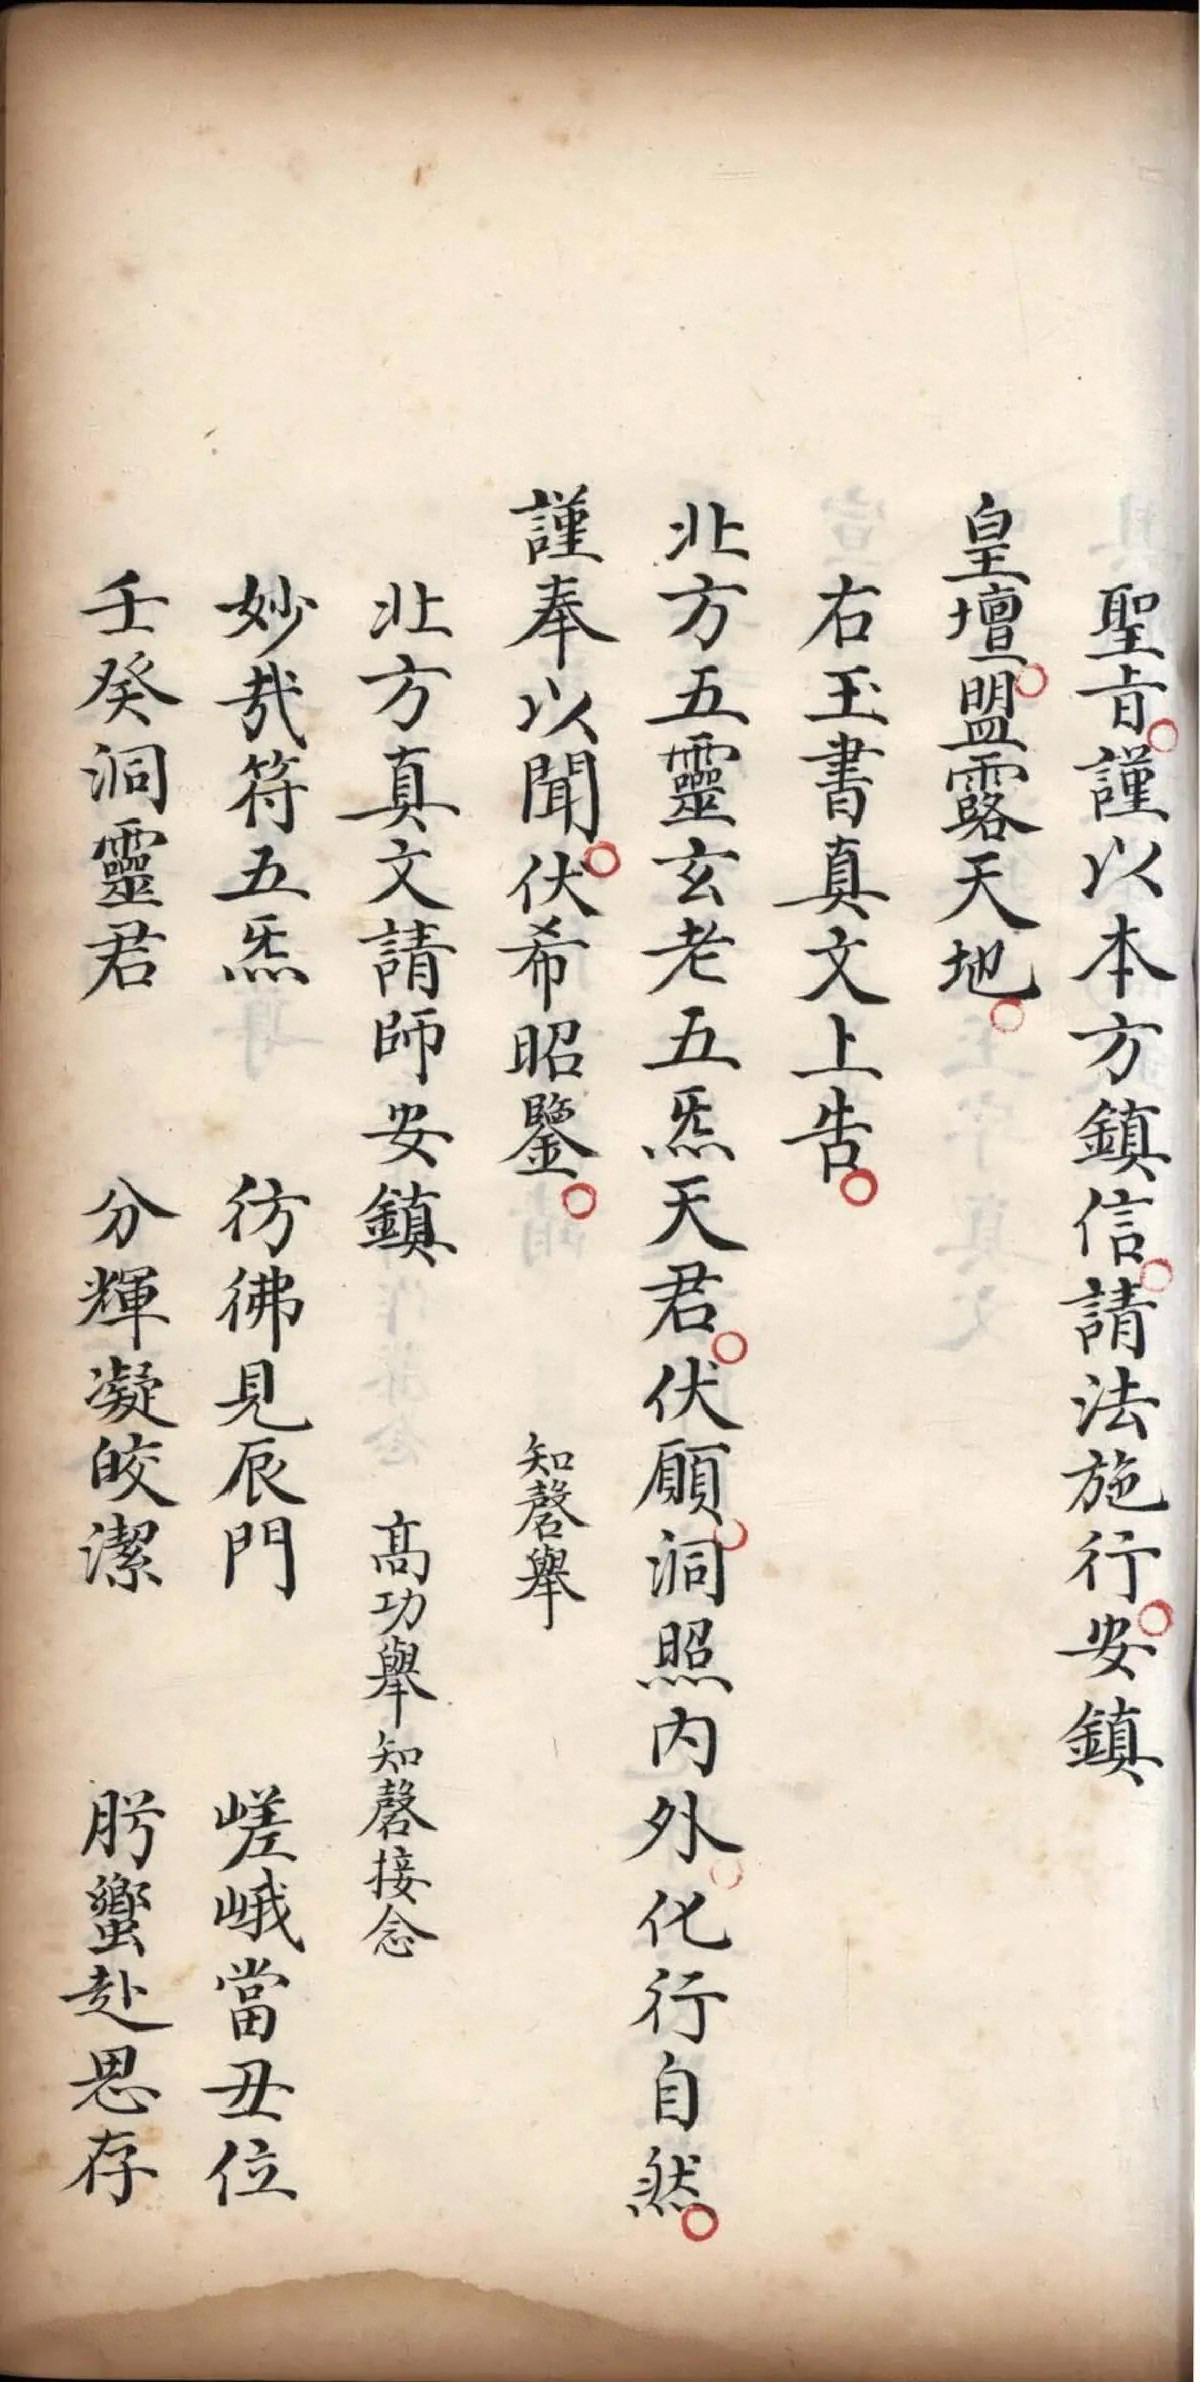 聖旨○謹以本方鎮信○請法施行○安鎮
皇壇○盟露天地○
右玉書真文上告○
北方五靈玄老五炁天君○伏願○洞照内外○化行自然○
謹奉以聞○伏希昭鑒○ 知磬舉
北方真文請師安鎮 高功舉知磬接念
妙哉符五炁 彷彿見辰門 嵯峨當丑位
壬癸洞靈君 分輝凝皎潔 肹蠁赴思存